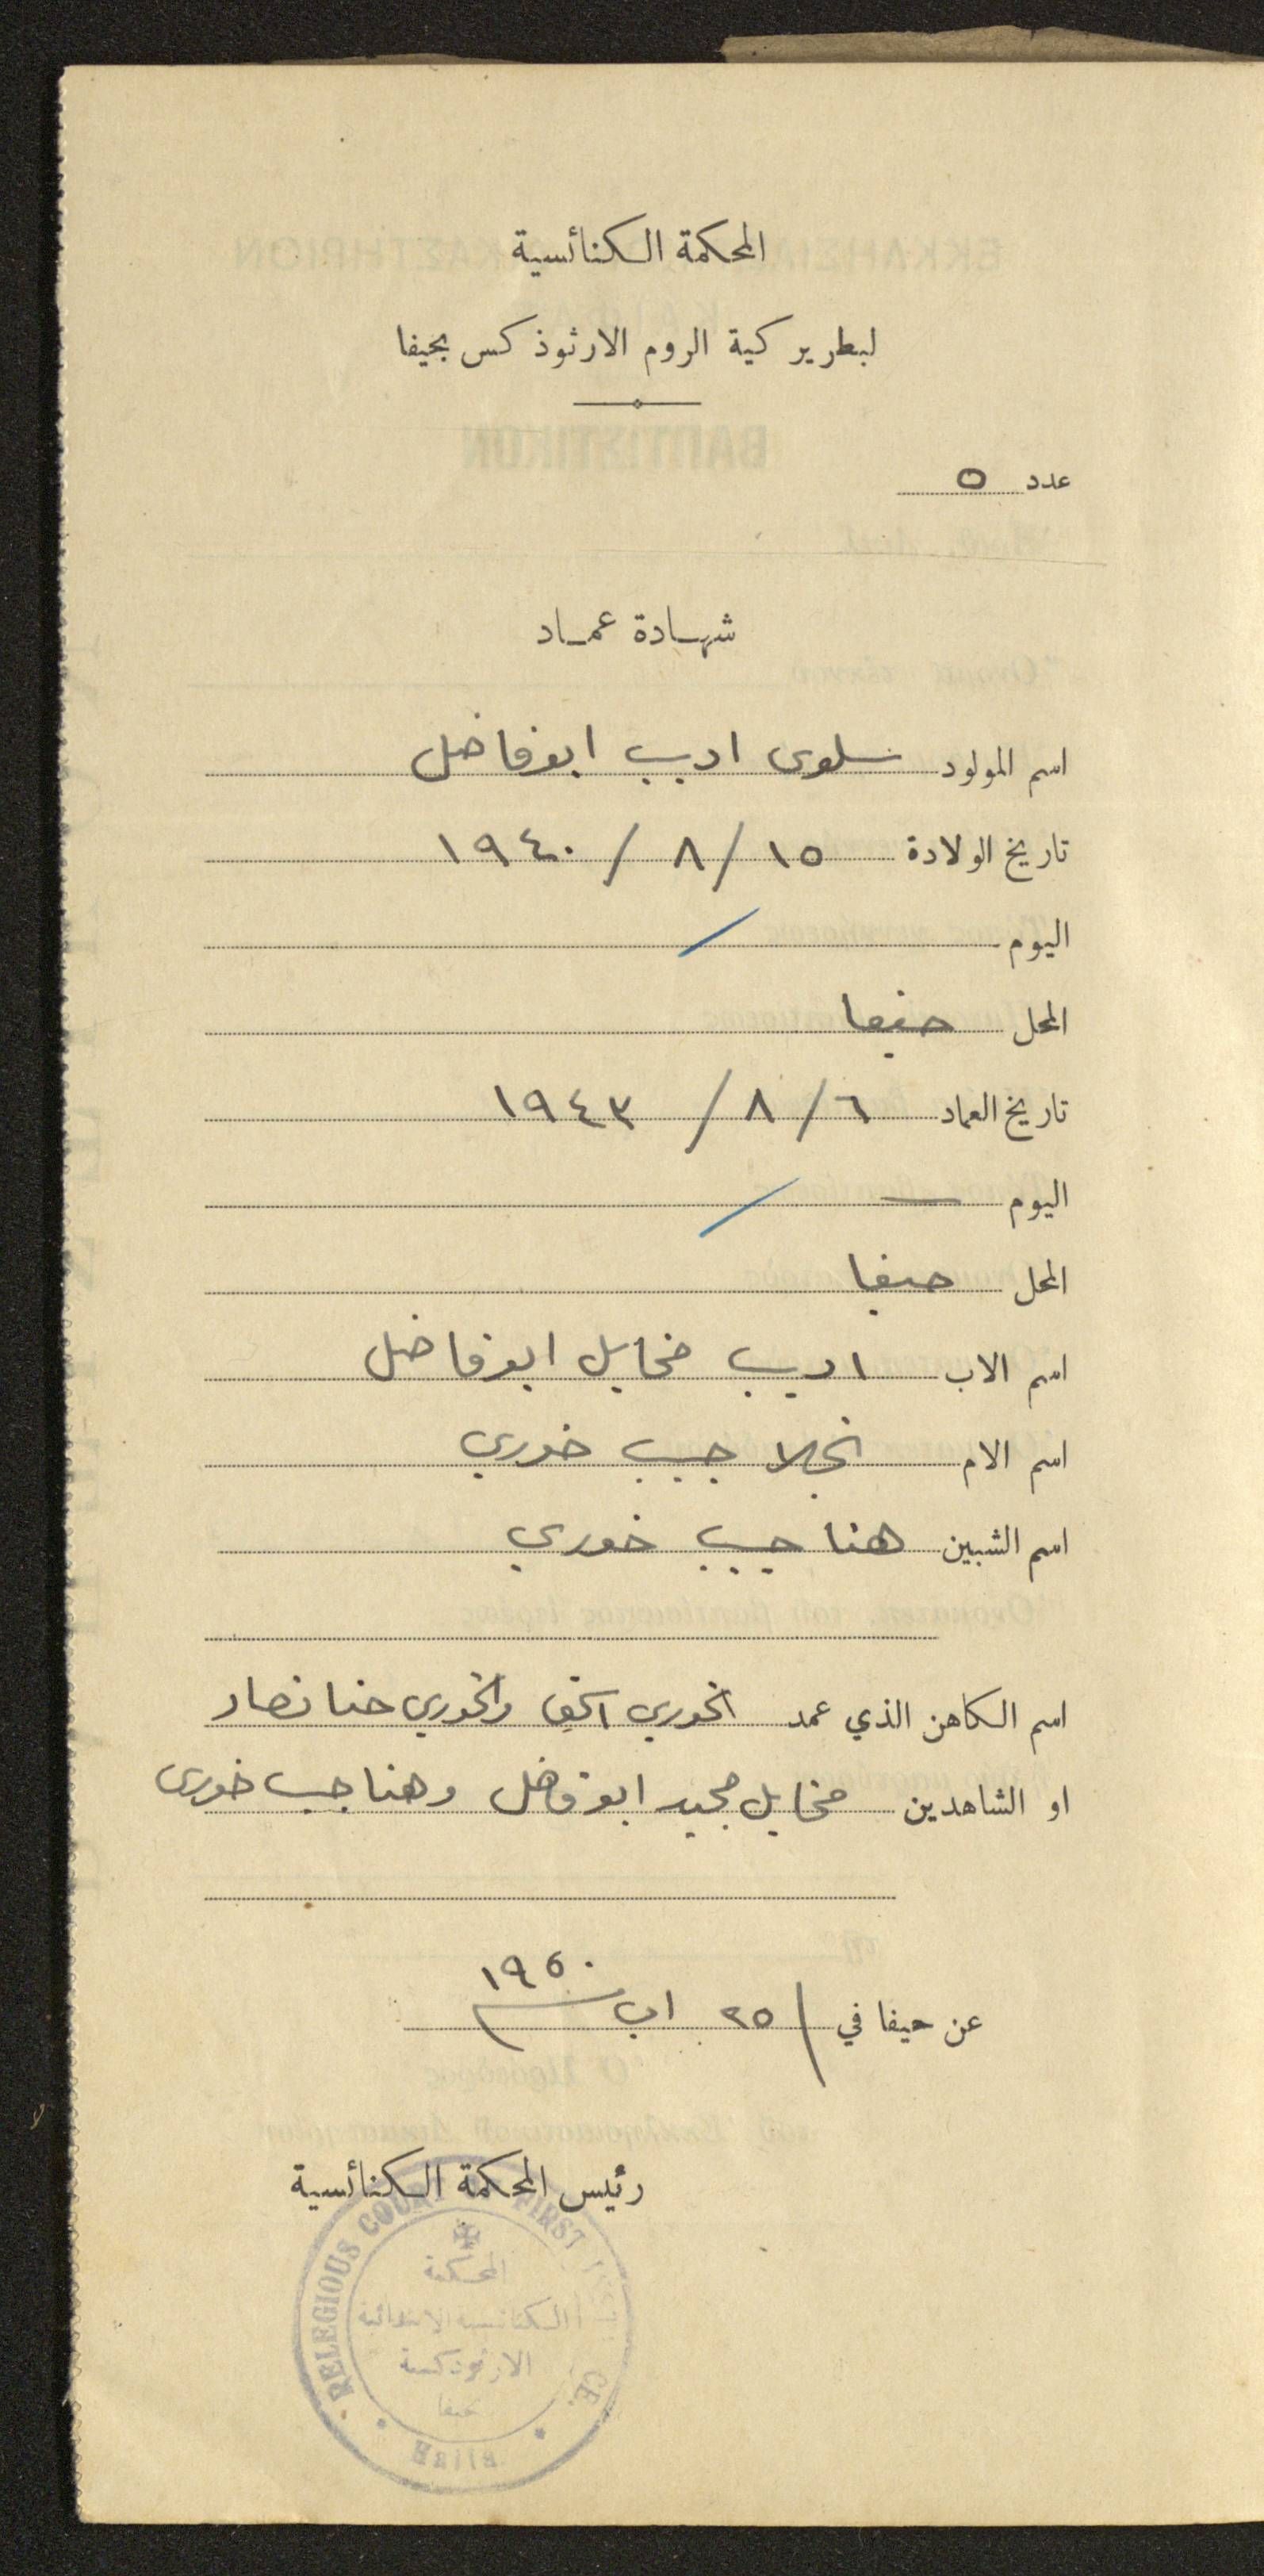 المحكمة الكنائسية
لبطريركية الروم الارثوذكس بحيفا
عدد ٥
شهادة عماد
اسم المولود سلوى اديب ابو فاضل
تاريخ الولادة ١٥ / ٨ / ١٩٤٠
اليوم /
المحل حيفا
تاريخ العماد ٦ / ٨ / ١٩٤٣
اليوم — /
المحل حيفا
اسم الاب اديب مخايل ابو فاضل
اسم الام نجلا حبيب خوري
اسم الشبين هنا حبيب خوري
اسم الكاهن الذي عمد الخوري اسحق والخوري حنا نصار
او الشاهدين مخايل مجيد ابو فاضل وهنا حبيب خوري
عن حيفا في / ٢٥ اب ١٩٥٠
رئيس المحكمة الكنائسية
RELEGIOUS COURT FIRST
المحكمة
الكنائسية الابتدائية
الارثوذكسية
حيفا
Haifa